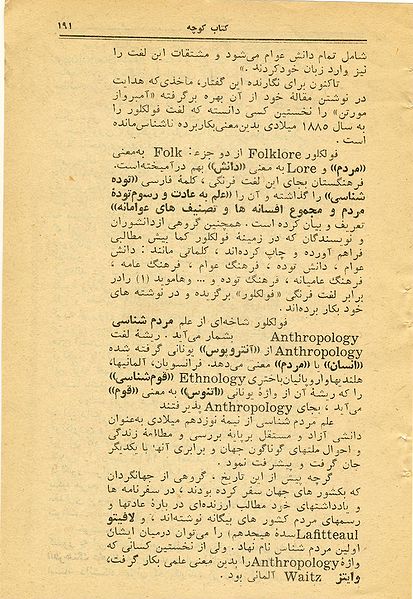 کتاب کوچه
۱۹۱
شامل تمام دانش عوام می‌شود و مشتقات این لغت را
نیز وارد زبان خود کردند .»
تاکنون برای نگارنده این گفتار، ماخذی‌که هدایت
در نوشتن مقالهٔ خود از آن بهره برگرفته «آمبرواز
مورتن» را نخستین کسی دانسته که لغت فولکلور را
به سال ۱۸۸۵ میلادی بدین‌معنی‌بکاربرده ناشناس‌مانده
است .
فولکلور Folklore از دو جزء: Folk به‌معنی
«مردم» و Lore به معنی «دانش» بهم درآمیخته‌است.
فرهنگستان بجای این لغت فرنگی ، کلمهٔ فارسی «توده
شناسی» را گذاشته و آن را «علم به عادت و رسوم‌تودهٔ
مردم و مجموع افسانه ها و تصنیف های عوامانه»
تعریف و بیان کرده است . همچنین گروهی ازدانشوران
و نویسندگان که در زمینهٔ فولکلور کما بیش مطالبی
فراهم آورده و چاپ کرده‌اند ، کلماتی مانند : دانش
عوام ، دانش توده ، فرهنگ عوام ، فرهنگ عامه ،
فرهنگ عامیانه ، فرهنگ توده و ... وهمانند (۱) رادر
برابر لغت فرنگی «فولکلور» برگزیده و در نوشته های
خود بکار برده‌اند.
فولکلور شاخه‌ای از علم مردم شناسی
Anthropology بشمار می‌آید . ریشهٔ لغت
Anthropology از «آنتروپوس» یونانی گرفته شده
«انسان» یا «مردم» معنی می‌دهد. فرانسویان، آلمانیها،
هلندیهاواروپائیان‌باختری Ethnology «قوم‌شناسی»
را که ریشهٔ آن از واژهٔ یونانی «اتنوس» به معنی «قوم»
می‌آید ، بجای Anthropology پذیرفتند
علم مردم شناسی از نیمهٔ نوزدهم میلادی به‌عنوان
دانشی آزاد و مستقل برپایهٔ بررسی و مطالعهٔ زندگی
و احوال ملتهای گوناگون جهان و برابری آنها با یکدیگر
جان گرفت و پیشرفت نمود .
گرچه پیش از این تاریخ ، گروهی از جهانگردان
که بکشور های جهان سفر کرده بودند ، در سفرنامه ها
و یادداشتهای خرد مطالب ارزنده‌ای در بارهٔ عادتها و
رسمهای مردم کشور های بیگانه نوشته‌اند ، و لافیتو
Lafitteaulسدهٔ هیجدهم» را می‌توان درمیان ایشان
اولین مردم شناس نام نهاد . ولی از نخستین کسانی که
واژهٔ Anthropology را بدین معنی علمی بکار گرفت،
وایتز Waitz آلمانی بود .